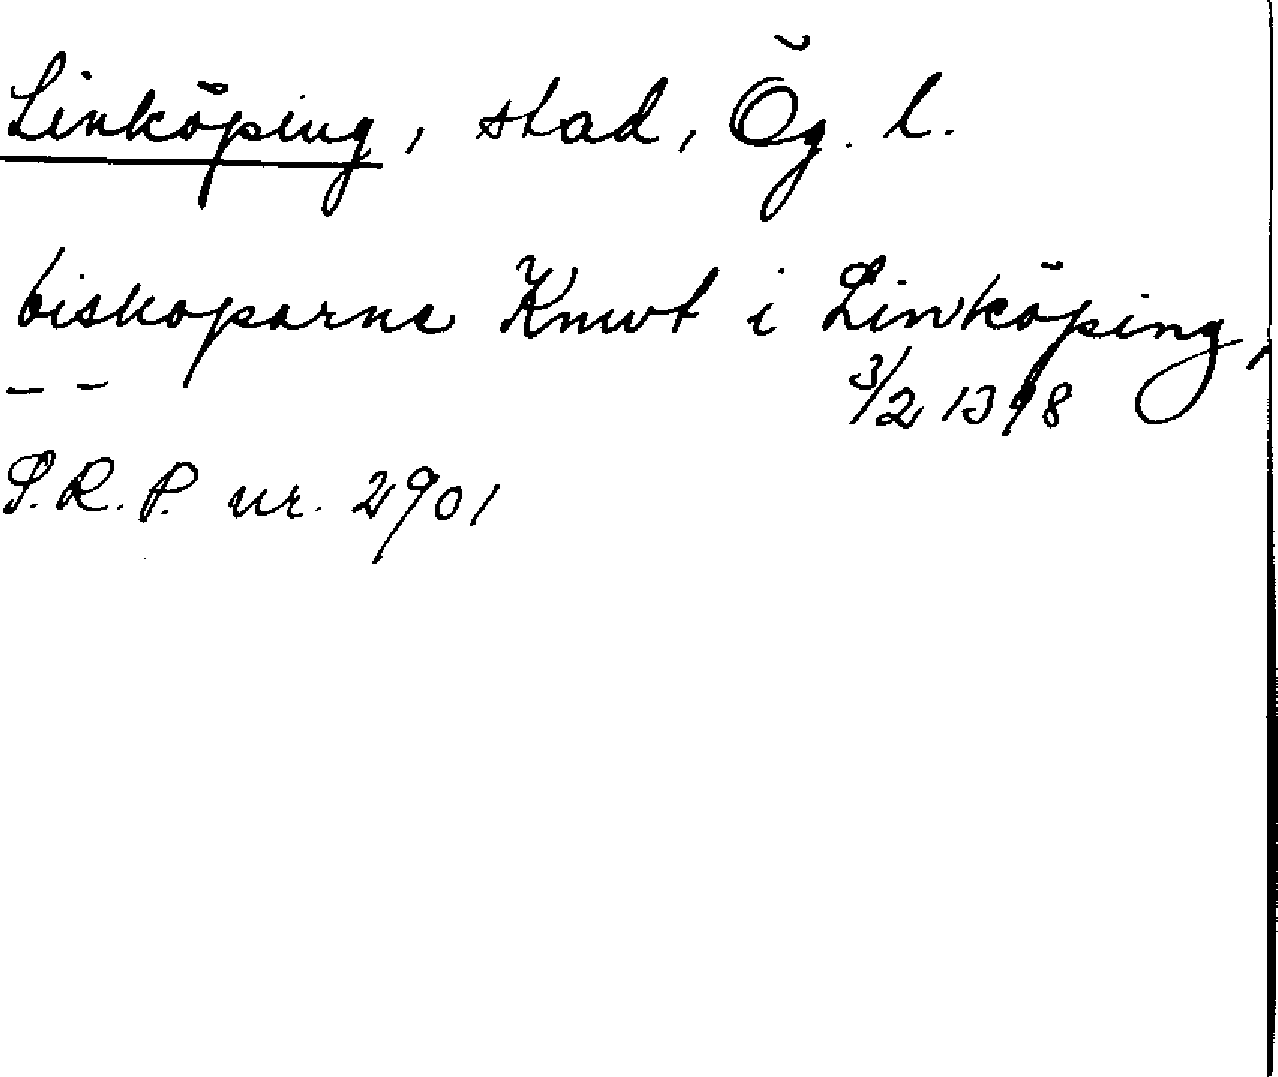 Linköping, stad, Ög. l.
biskoparne Knwt i Linköping,
— — 3/2 1398
S.R.P. nr. 2901